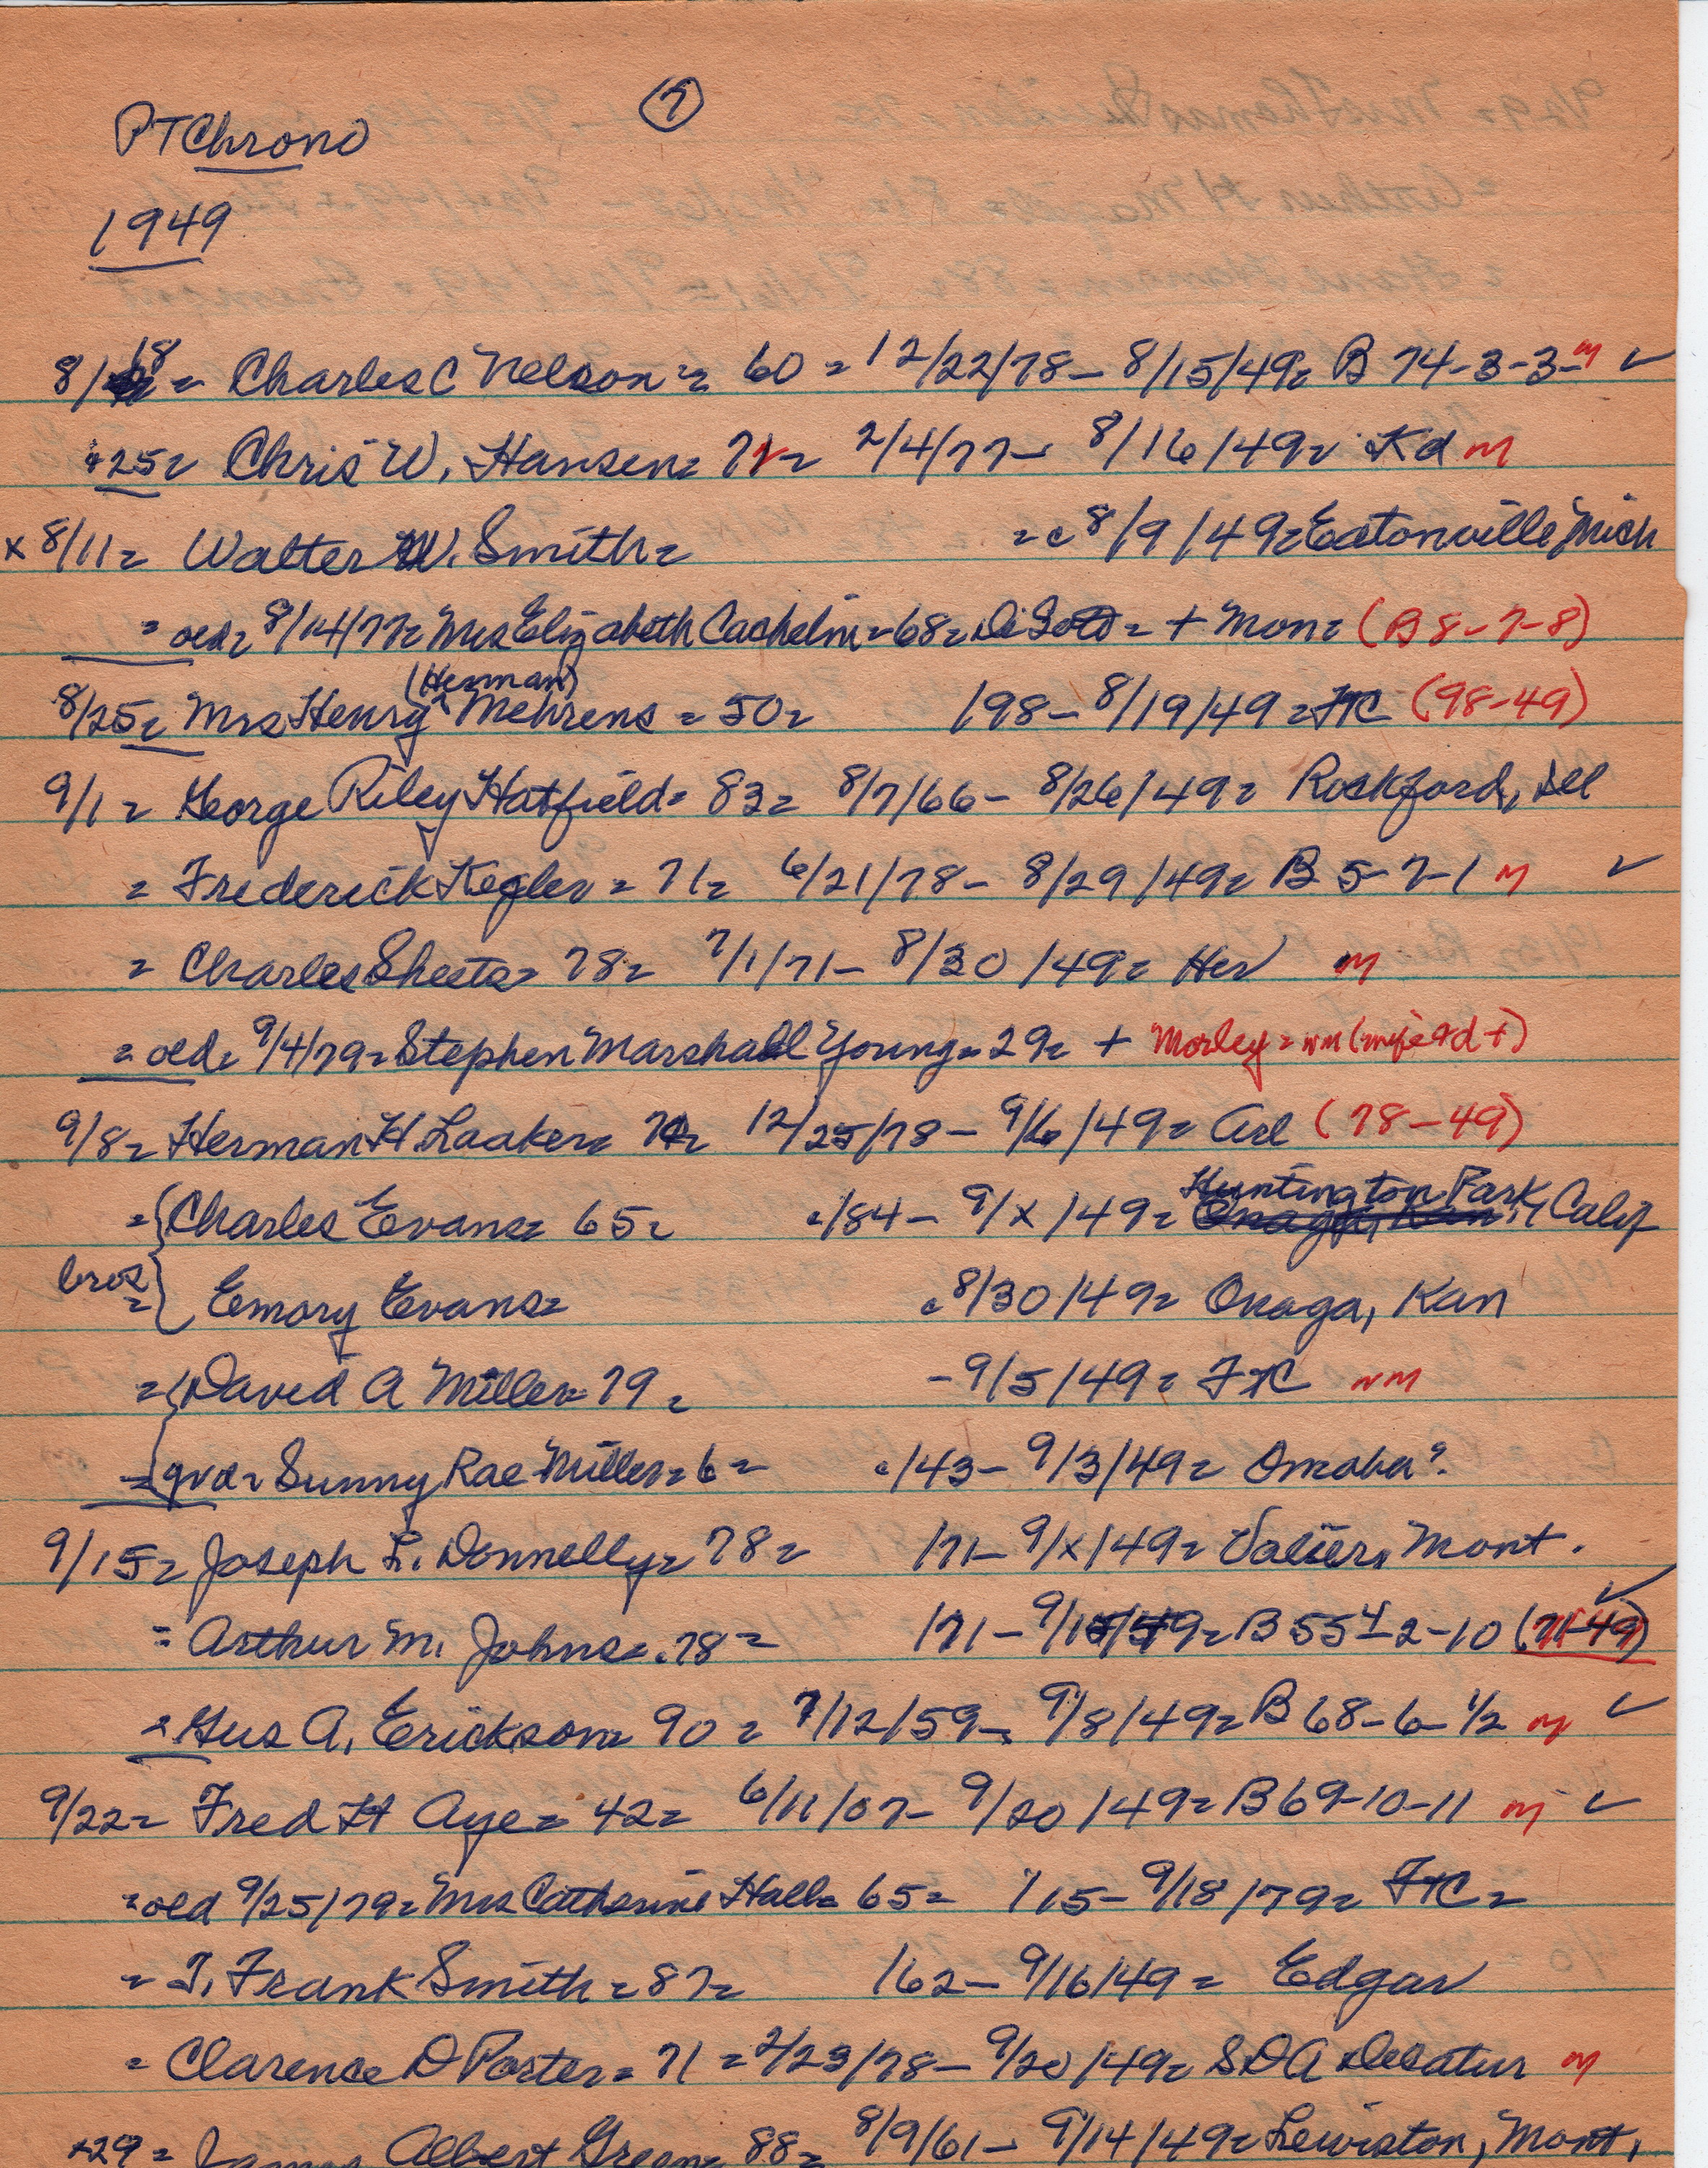 7
PTChrono
1949
8/18 = Charles C Nelson = 60 = 12/22/78 - 8/15/49 = B 74-3-3- m ✓
25 = Chris W. Hansen = 7 = 2/4/77 - 8/16/49 = Kd m
x 8/11 = Walter W. Smith = = c 8/9/49 = Eatonville, Mich
= old = 8/14/77 = Mrs Elizabeth Cachelin = 68 = DeSoto = + Mon = (B 8-7-8)
(Herman)
8/25 = Mrs Henry ^ Mehrens = 50 = /98 - 8/19/49 = FTC (98-49)
9/1 = George Riley Hatfield = 83 = 8/7/66 - 8/26/49 = Rockford, Ill
= Frederick Kegler = 71 = 6/21/78 - 8/29/49 = B 5-7-1 m ✓
= Charles Sheets = 78 = 7/1/71 - 8/30/49 = Her m
= old = 9/4/79 = Stephen Marshall Young = 29 = + Morley = nm (wife &d +)
9/8 = Herman H Laaker = 12/25/78 - 9/6/49 = Arl (78-49)
Huntington Park,
= { Charles Evans = 65 = c/84 - 9/x/49 = Onaga, Kan, Calif
bros = { Emory Evans = c 8/30/49 = Onaga, Kan
= { David A Miller = 79 = - 9/5/49 = FTC nm
= { gvd = Sunny Rae Miller = 6 = c/43 - 9/3/49 = Omaha?
9/15 = Joseph L. Donnelly = 78 = /71 - 9/x/49 = Valier, Mont.
= Arthur M. Johns = 78 = /71 - 9/ /49 = B 55 -2-10 (71-49) ✓
= Gus A. Erickson = 90 = 7/12/59 - 9/8/49 = B 68-6-1/2 m ✓
9/22 = Fred H Aye = 42 = 6/11/07 - 9/20/49 = B 69-10-11 m ✓
= old 9/25/79 = Mrs Catherine Hall = 65 = /15 - 9/18/79 = FTC =
= T. Frank Smith = 87 = /62 - 9/16/49 = Edgar
= Clarence D Porter = 71 = 2/23/78 - 9/20/49 = SDA Decatur m
29 = James Albert Green = 88 = 8/9/61 - 9/14/49 = Lewiston, Mont.